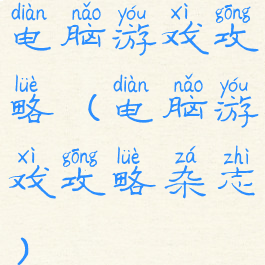 diàn nǎo yóu xì gōng
电脑游戏攻
lüè diàn nǎo yóu
略(电脑游
xì gōng lüè zá zhì
戏攻略杂志
)